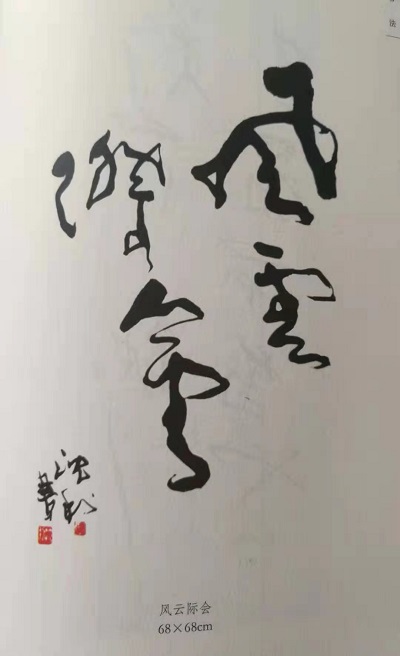 法
風雲
際會
风云际会
68×68cm